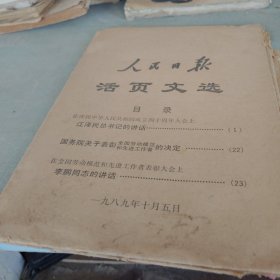 人民日报
活页文选
目录
在庆祝中华人民共和国成立四十周年大会上
江泽民总书记的讲话……………(1)
国务院关于表彰全国劳动模范和先进工作者的决定……(22)
在全国劳动模范和先进工作者表彰大会上
李鹏同志的讲话……………(23)
一九八九年十月五日